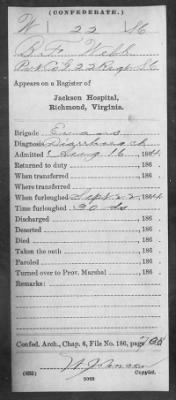 (CONFEDERATE.)
W | 22 | S.C.
B. F. Webb
Pvt. Co. G. 22 Regt. S.C.
Appears on a Register of
Jackson Hospital,
Richmond, Virginia.
Brigade Evans
Diagnosis Diarrhoea ch
Admitted Aug 16, 1864.
Returned to duty , 186 .
When transferred , 186 .
Where transferred
When furloughed Sept 22, 1864
Time furloughed 30 ds
Discharged , 186 .
Deserted , 186 .
Died , 186 .
Took the oath , 186 .
Paroled , 186 .
Turned over to Prov. Marshal , 186 .
Remarks:
Confed. Arch., Chap. 6, File No. 186, page
(635)
Copyist.